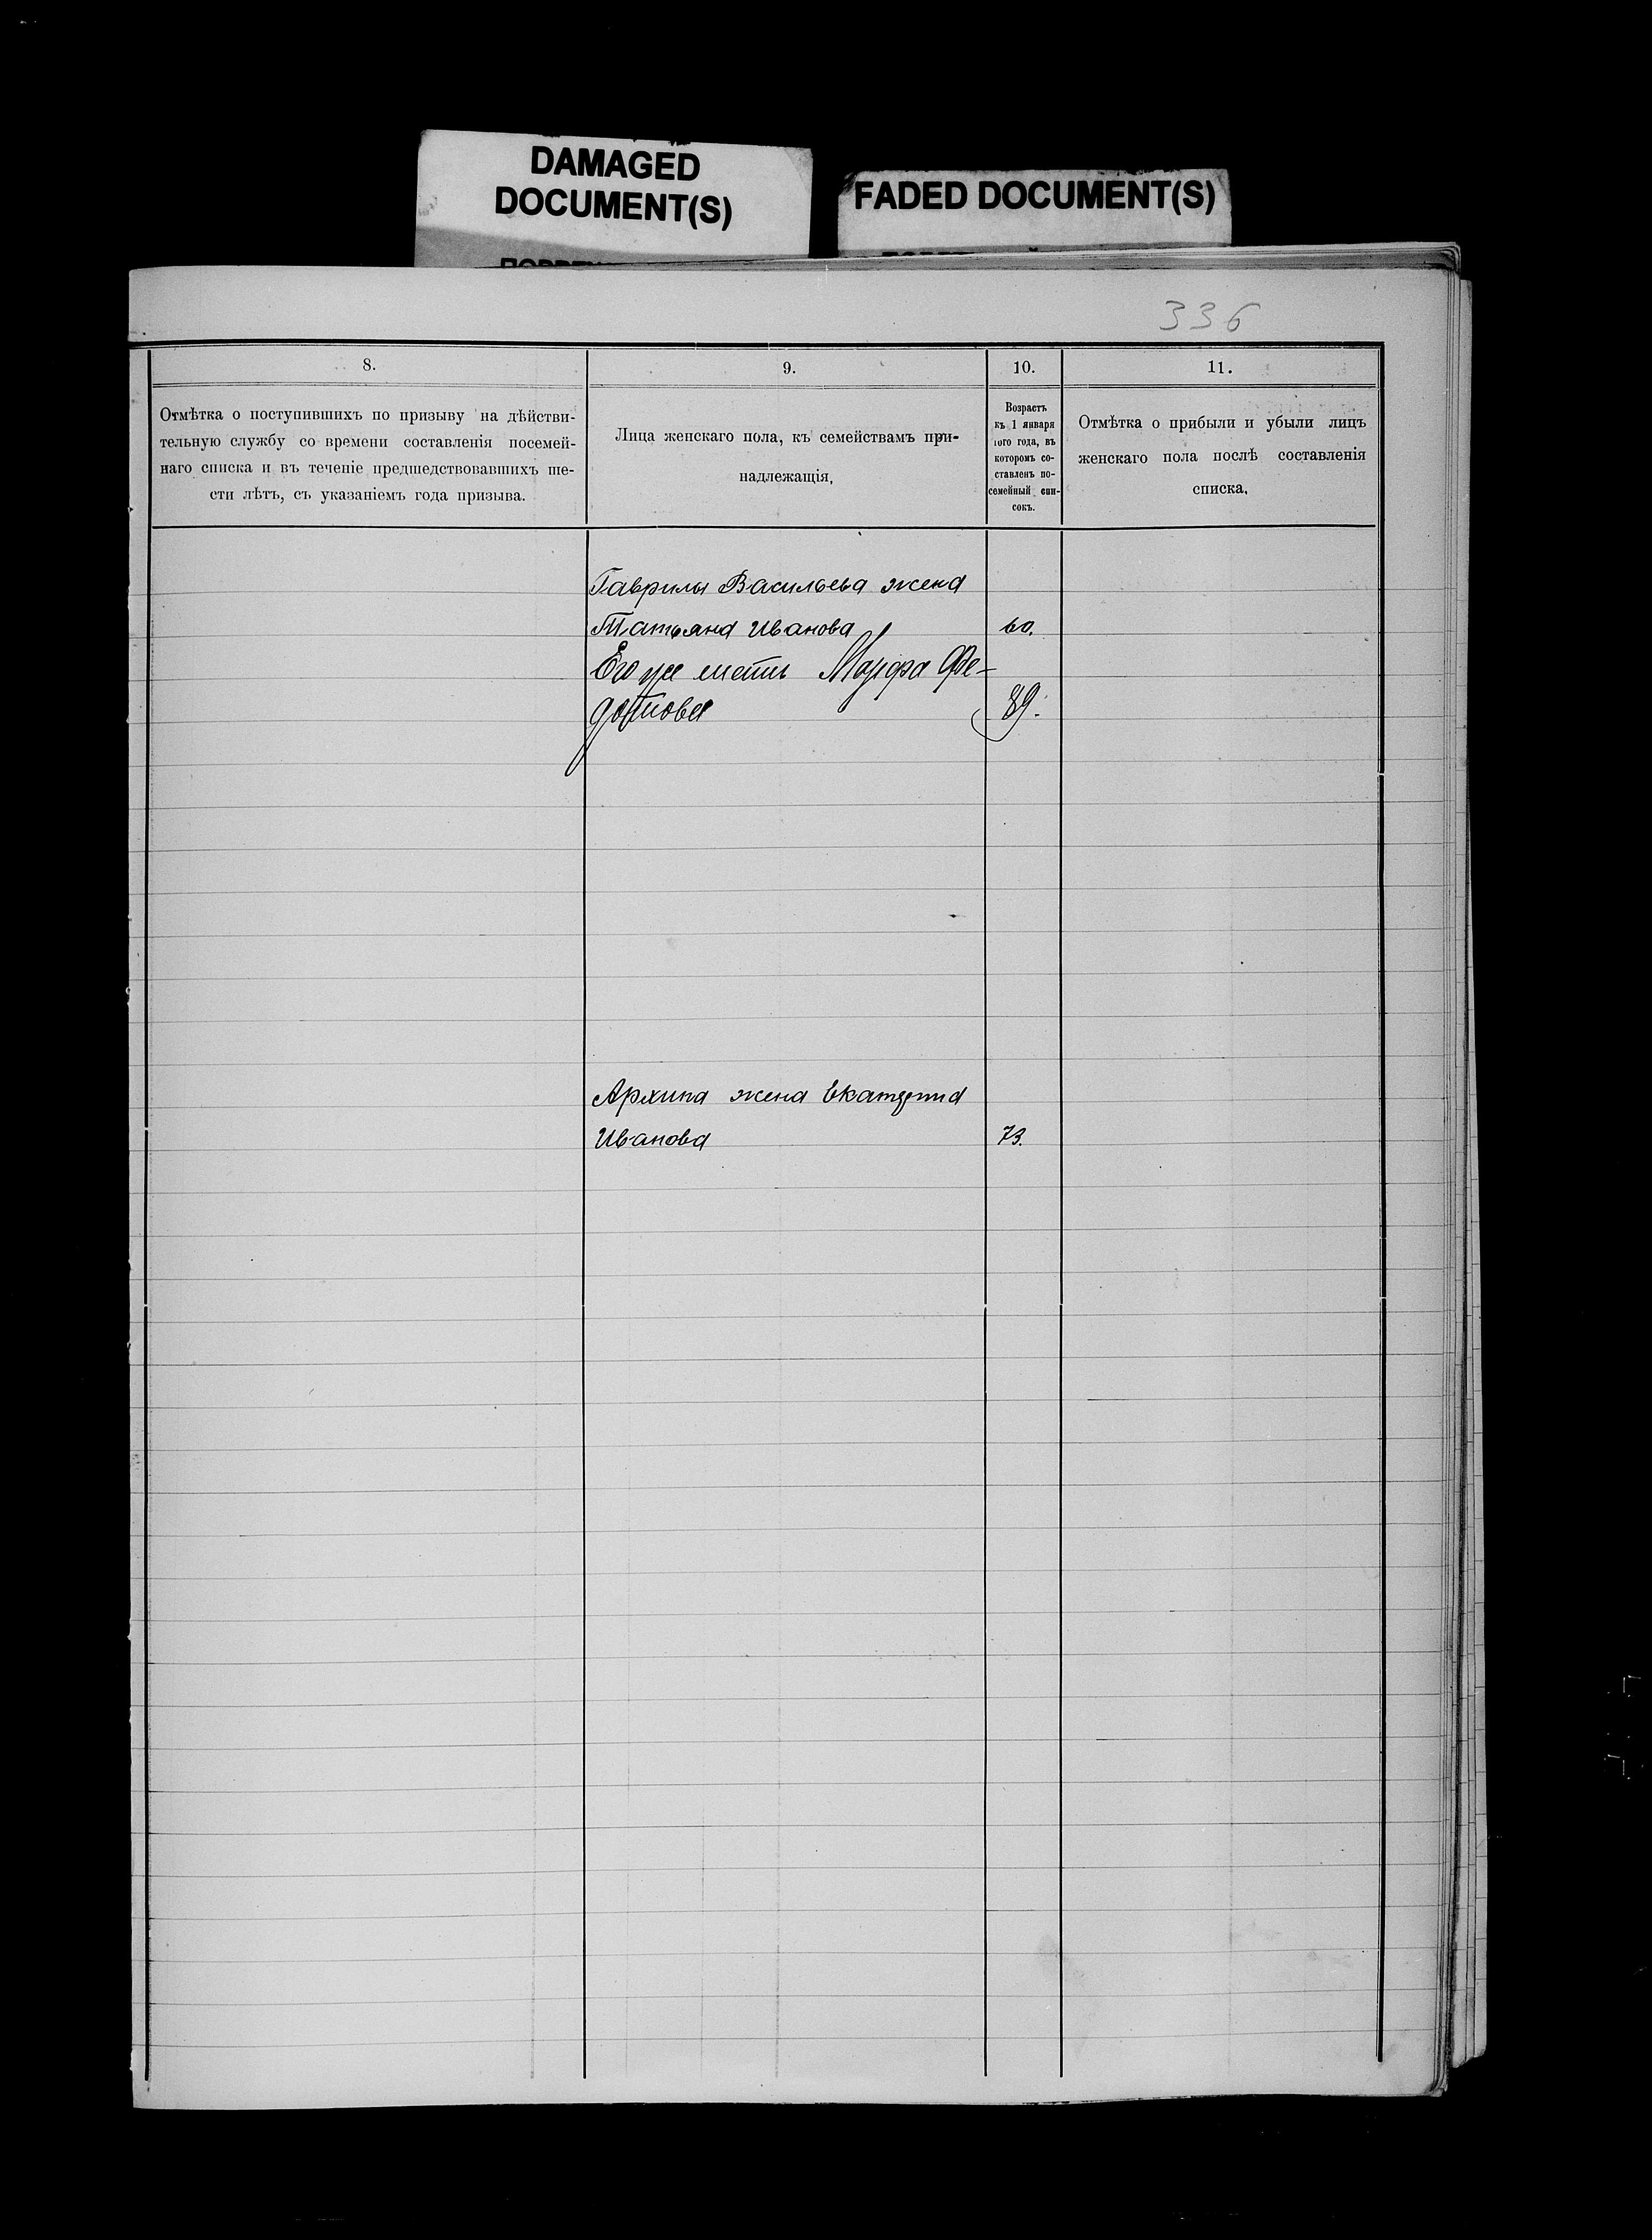 DAMAGED
DOCUMENT(S)
FADED DOCUMENT(S)
336
8.
9.
10.
11.
Отмѣтка о поступившихъ по призыву на дѣйстви-
тельную службу со времени составленія посемей-
наго списка и въ теченіе предшедствовавшихъ ше-
сти лѣтъ, съ указаніемъ года призыва.
Лица женскаго пола, къ семействамъ при-
надлежащія,
Возрастъ
къ 1 января
того года, въ
которомъ со-
ставленъ по-
семейный спи-
сокъ.
Отмѣтка о прибыли и убыли лицъ
женскаго пола послѣ составленія
списка.
Гаврилы Васильева жена
Татьяна Иванова 60.
Его же мать Марфа Фе-
дотова 89.
Архипа жена Екатерина
Иванова 73.